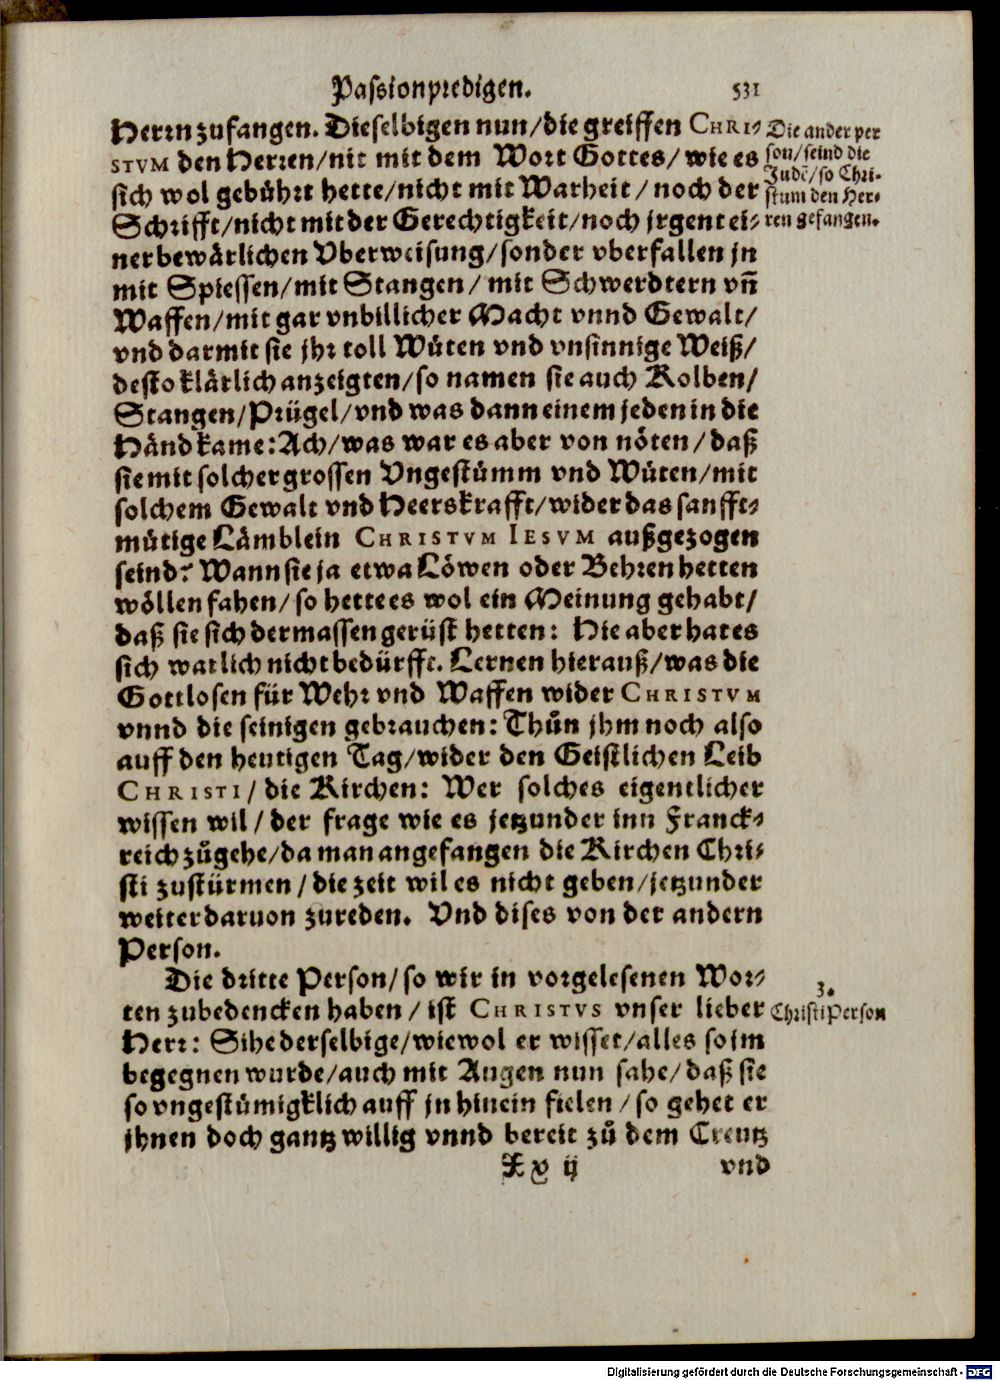 Passionpredigen. 531
Herrn zufangen. Dieselbigen nun/die greiffen CHRI-
STVM den Herren/nit mit dem Wort Gottes/wie es
sich wol gebührt hette/nicht mit Warheit/noch der
Schrifft/nicht mit der Gerechtigkeit/noch jrgent ei-
ner bewärlichen Vberweisung/sonder vberfallen jn
mit Spiessen/mit Stangen/mit Schwerdtern vñ
Waffen/mit gar vnbillicher Macht vnnd Gewalt/
vnd darmit sie jhr toll Wüten vnd vnsinnige Weiß/
desto klärlich anzeigten/so namen sie auch Kolben/
Stangen/Prügel/vnd was dann einem jeden in die
Händ kame: Ach/was war es aber von nöten/daß
sie mit solcher grossen Vngestümm vnd Wüten/mit
solchem Gewalt vnd Heerskrafft/wider das sanfft-
mütige Lämblein CHRISTVM IESVM außgezogen
seind? Wann sie ja etwa Löwen oder Behren hetten
wöllen fahen/so hette es wol ein Meinung gehabt/
daß sie sich dermassen gerüst hetten: Hie aber hat es
sich warlich nicht bedürfft. Lernen hierauß/was die
Gottlosen für Wehr vnd Waffen wider CHRISTVM
vnnd die seinigen gebrauchen: Thůn jhm noch also
auff den heutigen Tag/wider den Geistlichen Leib
CHRISTI/die Kirchen: Wer solches eigentlicher
wissen wil/der frage wie es jetzunder inn Franck-
reich zůgehe/da man angefangen die Kirchen Chri-
sti zustürmen/die zeit wil es nicht geben/jetzunder
weiter daruon zureden. Vnd dises von der andern
Person.
Die dritte Person/so wir in vorgelesenen Wor-
ten zubedencken haben/ist CHRISTVS vnser lieber
Herr: Sihe derselbige/wiewol er wisset/alles so jm
begegnen wurde/auch mit Augen nun sahe/daß sie
so vngestümigklich auff jn hinein fielen/so gehet er
jhnen doch gantz willig vnnd bereit zů dem Creutz
Xx ij vnd
Die ander per
son/seind die
Judē/so Chri-
stum den Her-
ren gefangen.
3.
Christi Person
Digitalisierung gefördert durch die Deutsche Forschungsgemeinschaft - DFG